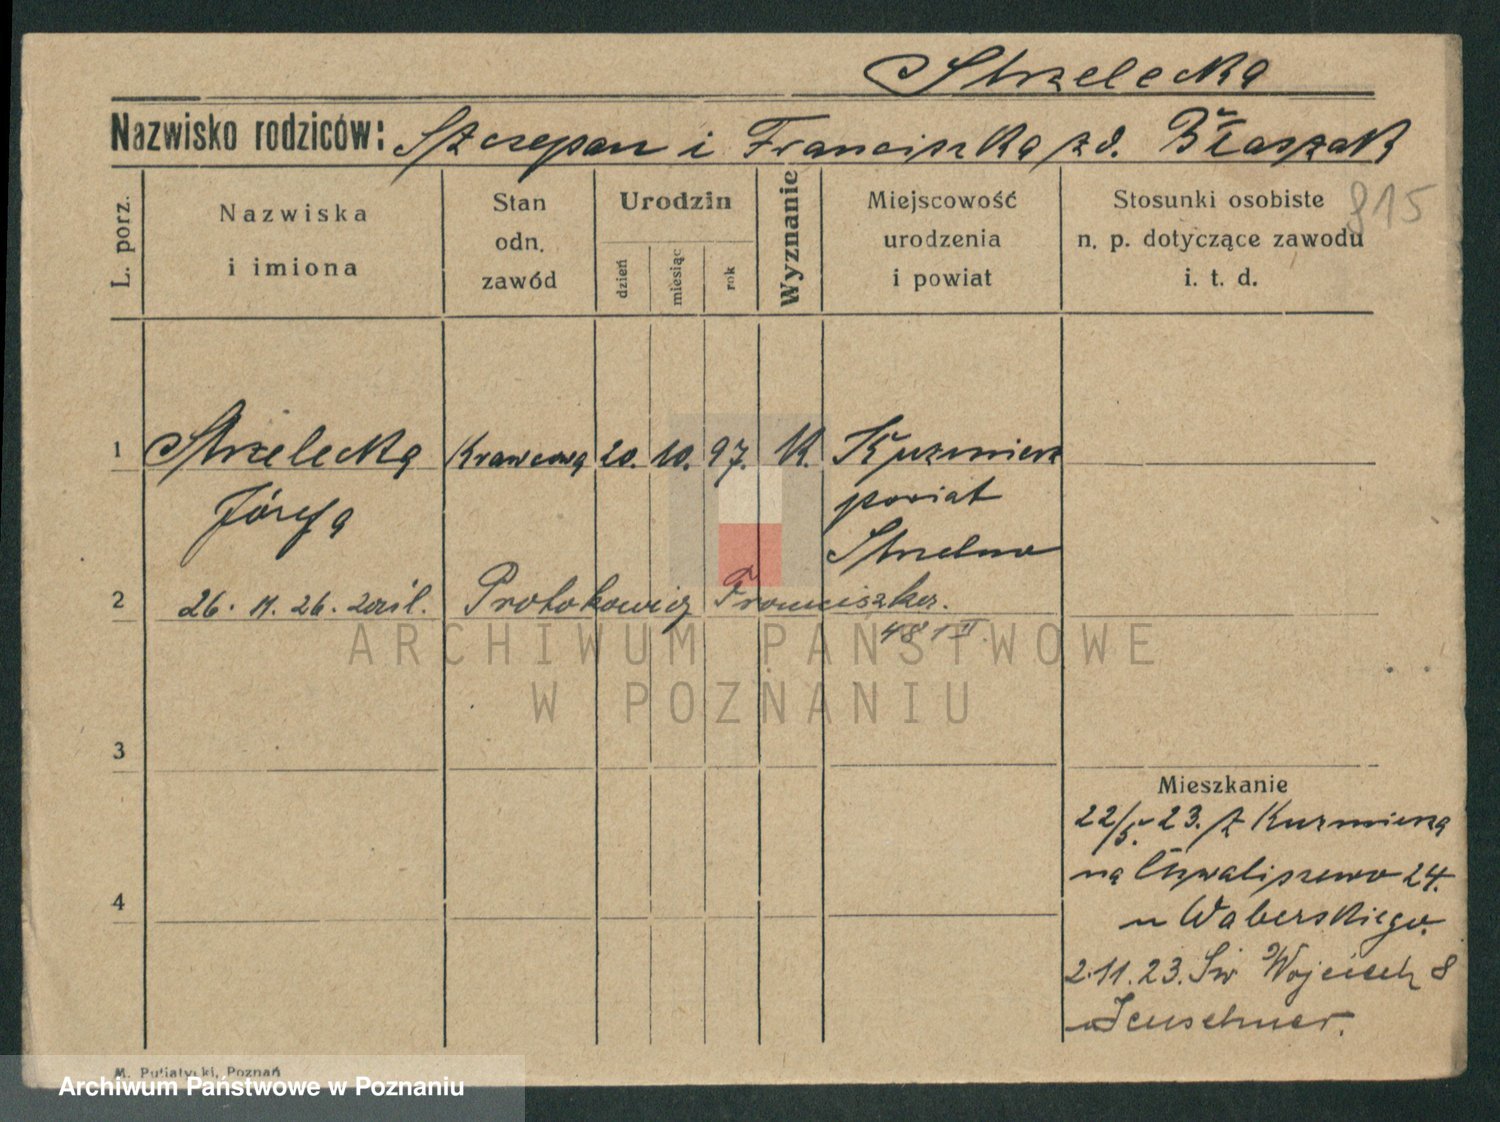 Strzelecka
Nazwisko rodziców: Szczepan i Franciszka zd. Błaszak
815
L. porz.
Nazwiska
i imiona
Stan
odn.
zawód
Urodzin
dzień
miesiąc
rok
Wyznanie
Miejscowość
urodzenia
i powiat
Stosunki osobiste
n. p. dotyczące zawodu
i. t. d.
1 Strzelecka Krawcową 20. 10. 97. K. Kuzmierz
Józefa
powiat
Strzelno
2 26. 11. 26. zaśl. Protokowicz Franciszka.
481 II.
ARCHIWUM PAŃSTWOWE
W POZNANIU
3
Mieszkanie
22/5. 23. z Kuzmierza
na Chwaliszewo 24.
4
u Waberskiego.
2.11.23. Św Wojciech 8
u Jeuschner.
M. Putiatycki, Poznań
Archiwum Państwowe w Poznaniu